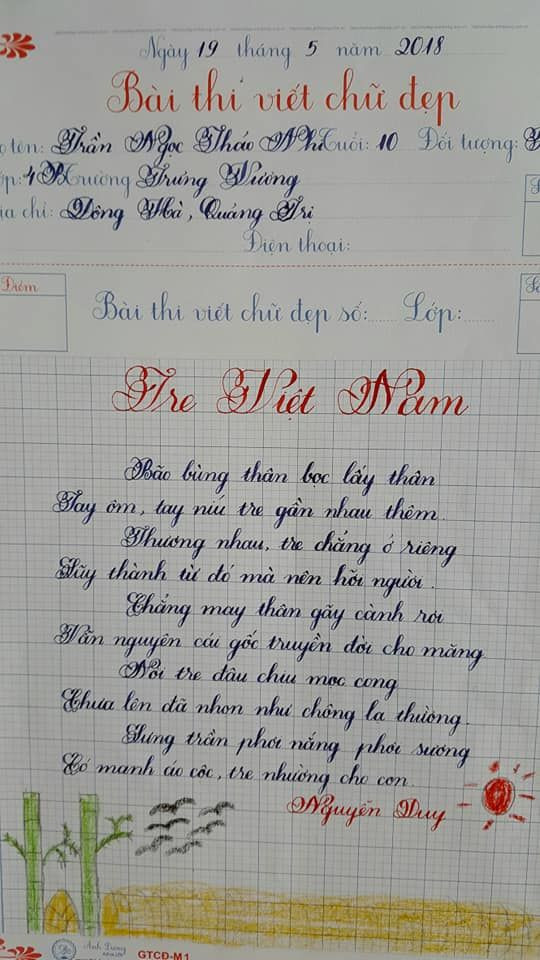 Ngày 19 tháng 5 năm 2018
Bài thi viết chữ đẹp
ọ tên: Trần Ngọc Thảo Nhi Tuổi: 10 Đối tượng:
ớp: 4B Trường Trưng Vương
ịa chỉ: Đông Hà, Quảng Trị
Điện thoại:
Điểm
Bài thi viết chữ đẹp số: Lớp:
Tre Việt Nam
Bão bùng thân bọc lấy thân
Tay ôm, tay níu tre gần nhau thêm.
Thương nhau, tre chẳng ở riêng
Lũy thành từ đó mà nên hỡi người.
Chẳng may thân gãy cành rơi
Vẫn nguyên cái gốc truyền đời cho măng
Nòi tre đâu chịu mọc cong
Chưa lên đã nhọn như chông lạ thường.
Lưng trần phơi nắng phơi sương
Có manh áo cộc, tre nhường cho con.
Nguyễn Duy
Ánh Dương
GTCĐ-M1